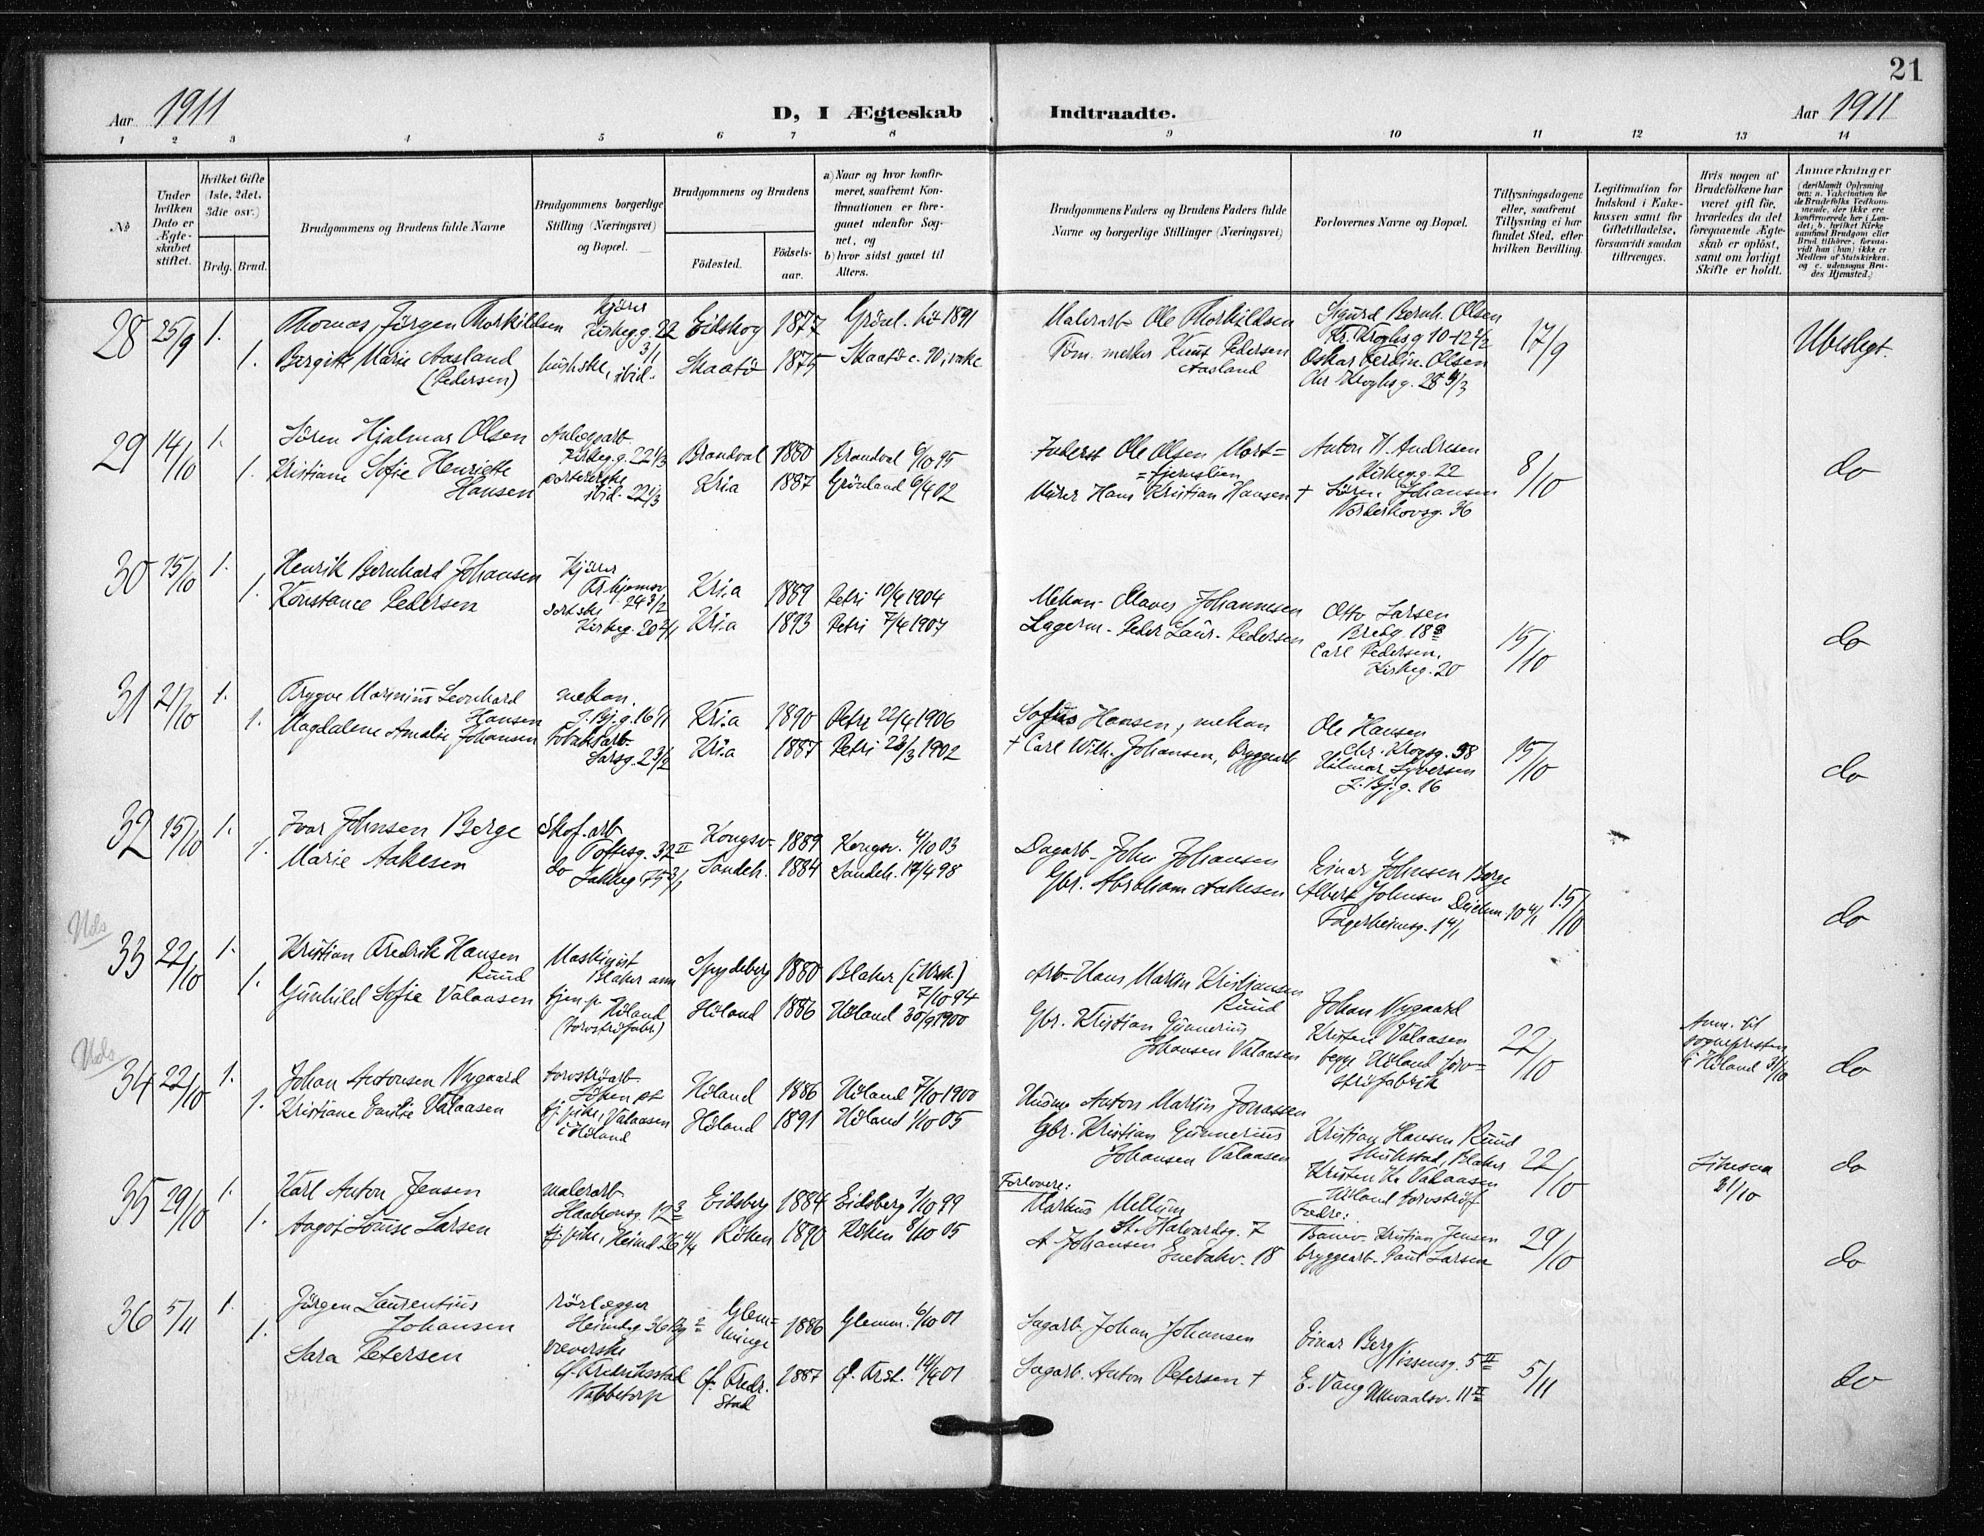 21
Aar 1911
D, I Ægteskab Indtraadte.
Aar 1911
1 2 3 4 5 6 7 8 9 10 11 12 13 14
№
Under hvilken Dato er Ægteskabet stiftet.
Hvilket Gifte (1ste, 2det, 3die osv.)
Brdg. Brud.
Brudgommens og Brudens fulde Navne
Brudgommens borgerlige Stilling (Næringsvei) og Bopæl.
Brudgommens og Brudens
Fødested.
Fødselsaar.
a) Naar og hvor konfirmeret, saafremt Konfirmationen er foregaaet udenfor Sognet, og
b) hvor sidst gaaet til Alters.
Brudgommens Faders og Brudens Faders fulde Navne og borgerlige Stillinger (Næringsvei)
Forlovernes Navne og Bopæl.
Tillysningsdagene eller, saafremt Tillysning ei har fundet Sted, efter hvilken Bevilling.
Legitimation for Indskud i Enkekassen samt for Giftetilladelse, forsaavidt saadan tiltrænges.
Hvis nogen af Brudefolkene har været gift før, hvorledes da det foregaaende Ægteskab er opløst, samt om lovligt Skifte er holdt.
Anmærkninger
28 25/9 1. Thomas Jörgen Thorkildsen Kjörer Kirkeg. 22 3/1 Eidskog 1877 Grönl. hö 1891 Malerarb Ole Thorkildsen Sigurd Bernh. Olsen 17/9 Ubeslegt.
1. Bergitte Marie Aasland (Pedersen) hushske, ibid. Skaatö 1875 Skaatö c. 90, i vake Töm. merker Knut Pedersen Aasland Oskar Ferdin. Olsen Chr Kroghsg. 28
29 14/10 1. Sören Hjalmar Olsen Anlegsarb. Kirkeg. 22 1/3 Brandval 1880 Brandval 6/10 95 Inderst Ole Olsen Mort= =tjernslien Anton H. Andresen Kirkeg. 22 8/10 do
1. Kristiane Sofie Henriette Hansen ibid. 22 1/3 Kria 1887 Grönland 6/4 02 Murer Hans Kristian Hansen + Sören Johansen Norderhovsg. 36
30 15/10 1. Henrik Bernhard Johansen Kjörer 24 3/2 Kria 1889 Petri 10/4 1904 Mekan. Olaves Johannesen Otto Larsen Bredg. 18 15/10 do
1. Konstance Pedersen Kirkeg. 20 2/1 Kria 1893 Petri 7/4 1907 Lagerm. Peder Laur. Pedersen Carl Pedersen, Kirkeg. 20
31 21/10 1. Trygve Marinius Leonhard Hansen mekan. J. Bj. g. 16 1/1 Kria 1890 Petri 22/4 1906 Sofus Hansen, mekan Ole Hansen Chr. Krogsg. 58 15/10 do
1. Magdalene Amalie Johansen Tobaksarb. Larsg. 2 3/2 Kria 1887 Petri 23/3 1902 + Carl Wilh. Johansen, bryggearb Hilmar Syversen J. Bj. g. 16
32 15/10 1. Ivar Johnsen Berge Skof. arb Toftesg. 32 II Kongsv. 1889 Kongsv. 4/10 03 Dagarb. John Johansen Einar Johnsen Berge 15/10 do
1. Marie Aakesen do Jakbg 75 3/1 Sandeh. 1884 Sandeh. 17/4 98 Gbr. Abraham Aakesen Albert Johnsen Fagerheimsg. 14/1
Uds
33 22/10 1. Kristian Fredrik Hansen Ruud Maskinist Blaker ann Spydeberg 1880 Blaker 7/10 94 Arb. Hans Martin Kristiansen Ruud Johan Nygaard 22/10 Anm. til sognepresten i Höland 31/10 do
1. Gunhild Sofie Valaasen tjen. p. Höland (torvströfabr.) Höland 1886 Höland 30/9 1900 Gbr. Kristian Gunnerius Johansen Valaasen Kristen Valaasen begge Höland torv=ströfabrik
Uds
34 22/10 1. Johan Antonsen Nygaard torvströarb Höland 1886 Höland 7/10 1900 Husm Anton Martin Jonassen Kristian Hansen Ruud Blaker 22/10 Likesaa 31/10 do
1. Kristiane Emilie Valaasen tj. pike, Valaasen i Höland Höland 1891 Höland 1/10 05 Gbr. Kristian Gunnerius Johansen Valaasen Kristen K. Valaasen Höland torvströf
35 29/10 1. Karl Anton Jensen malerarb Haakonsg. 12 Eidsberg 1884 Eidsberg 1/10 99 Forlovere: Markus Mellum St. Halvardsg. 7 Fædre: Banev. Kristian Jensen 29/10 do
1. Aagot Louise Larsen tj. pike, Heimd 26 4/4 Röken 1890 Röken 8/10 05 A. Johansen Enebakv. 18 bryggearb. Paul Larsen
36 5/11 1. Jörgen Laurentius Johansen rörlægger Heimdg 36 Glemminge 1886 Glemm. 6/10 01 Sagarb. Johan Johansen Einar Berg Nissensg. 5 II 5/11 do
1. Sara Petersen væverske Ø. Fredriksstad Nabbetorp Ø. Fredr.stad 1887 Ø. Frst. 14/4 01 Sagarb. Anton Petersen + E. Vang 11 II